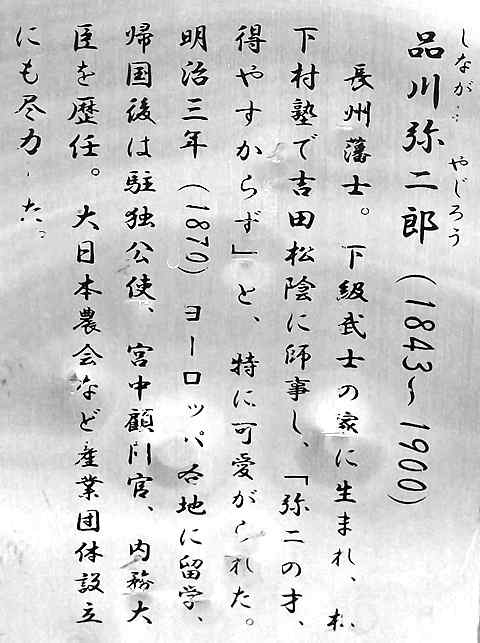 しなが やじろう
品川弥二郎(1843〜1900)
長州藩士。下級武士の家に生まれ、松
下村塾で吉田松陰に師事し、「弥二の才、
得やすからず」と、特に可愛がられた。
明治三年(1870)ヨーロッパ各地に留学、
帰国後は駐独公使、宮中顧問官、内務大
臣を歴任。大日本農会など産業団体設立
にも尽力 た。